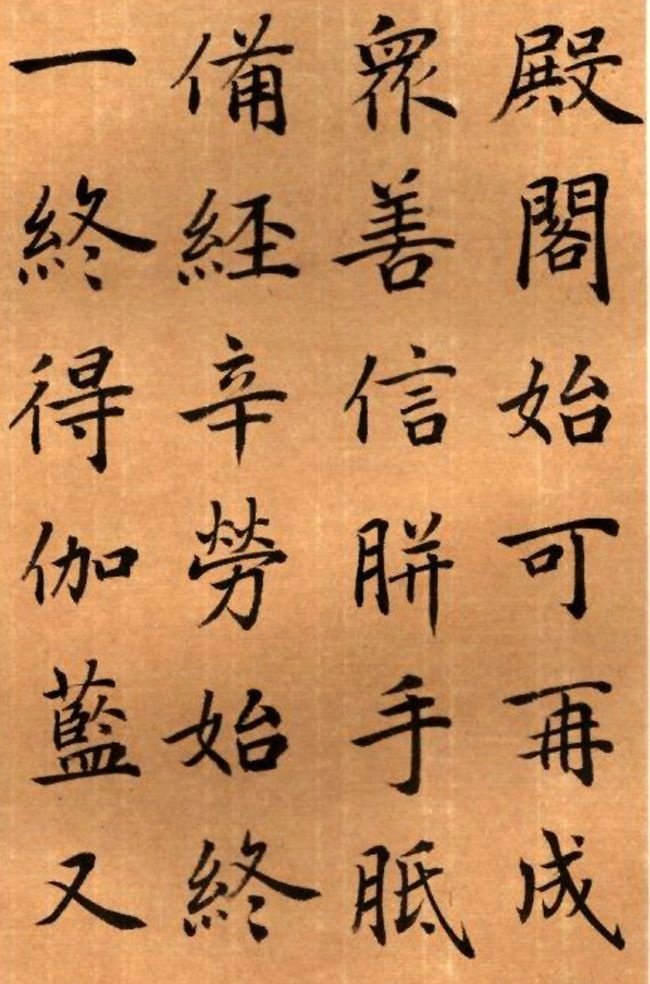 殿閣始可再成
眾善信胼手胝
備經辛勞始終
一終得伽藍又